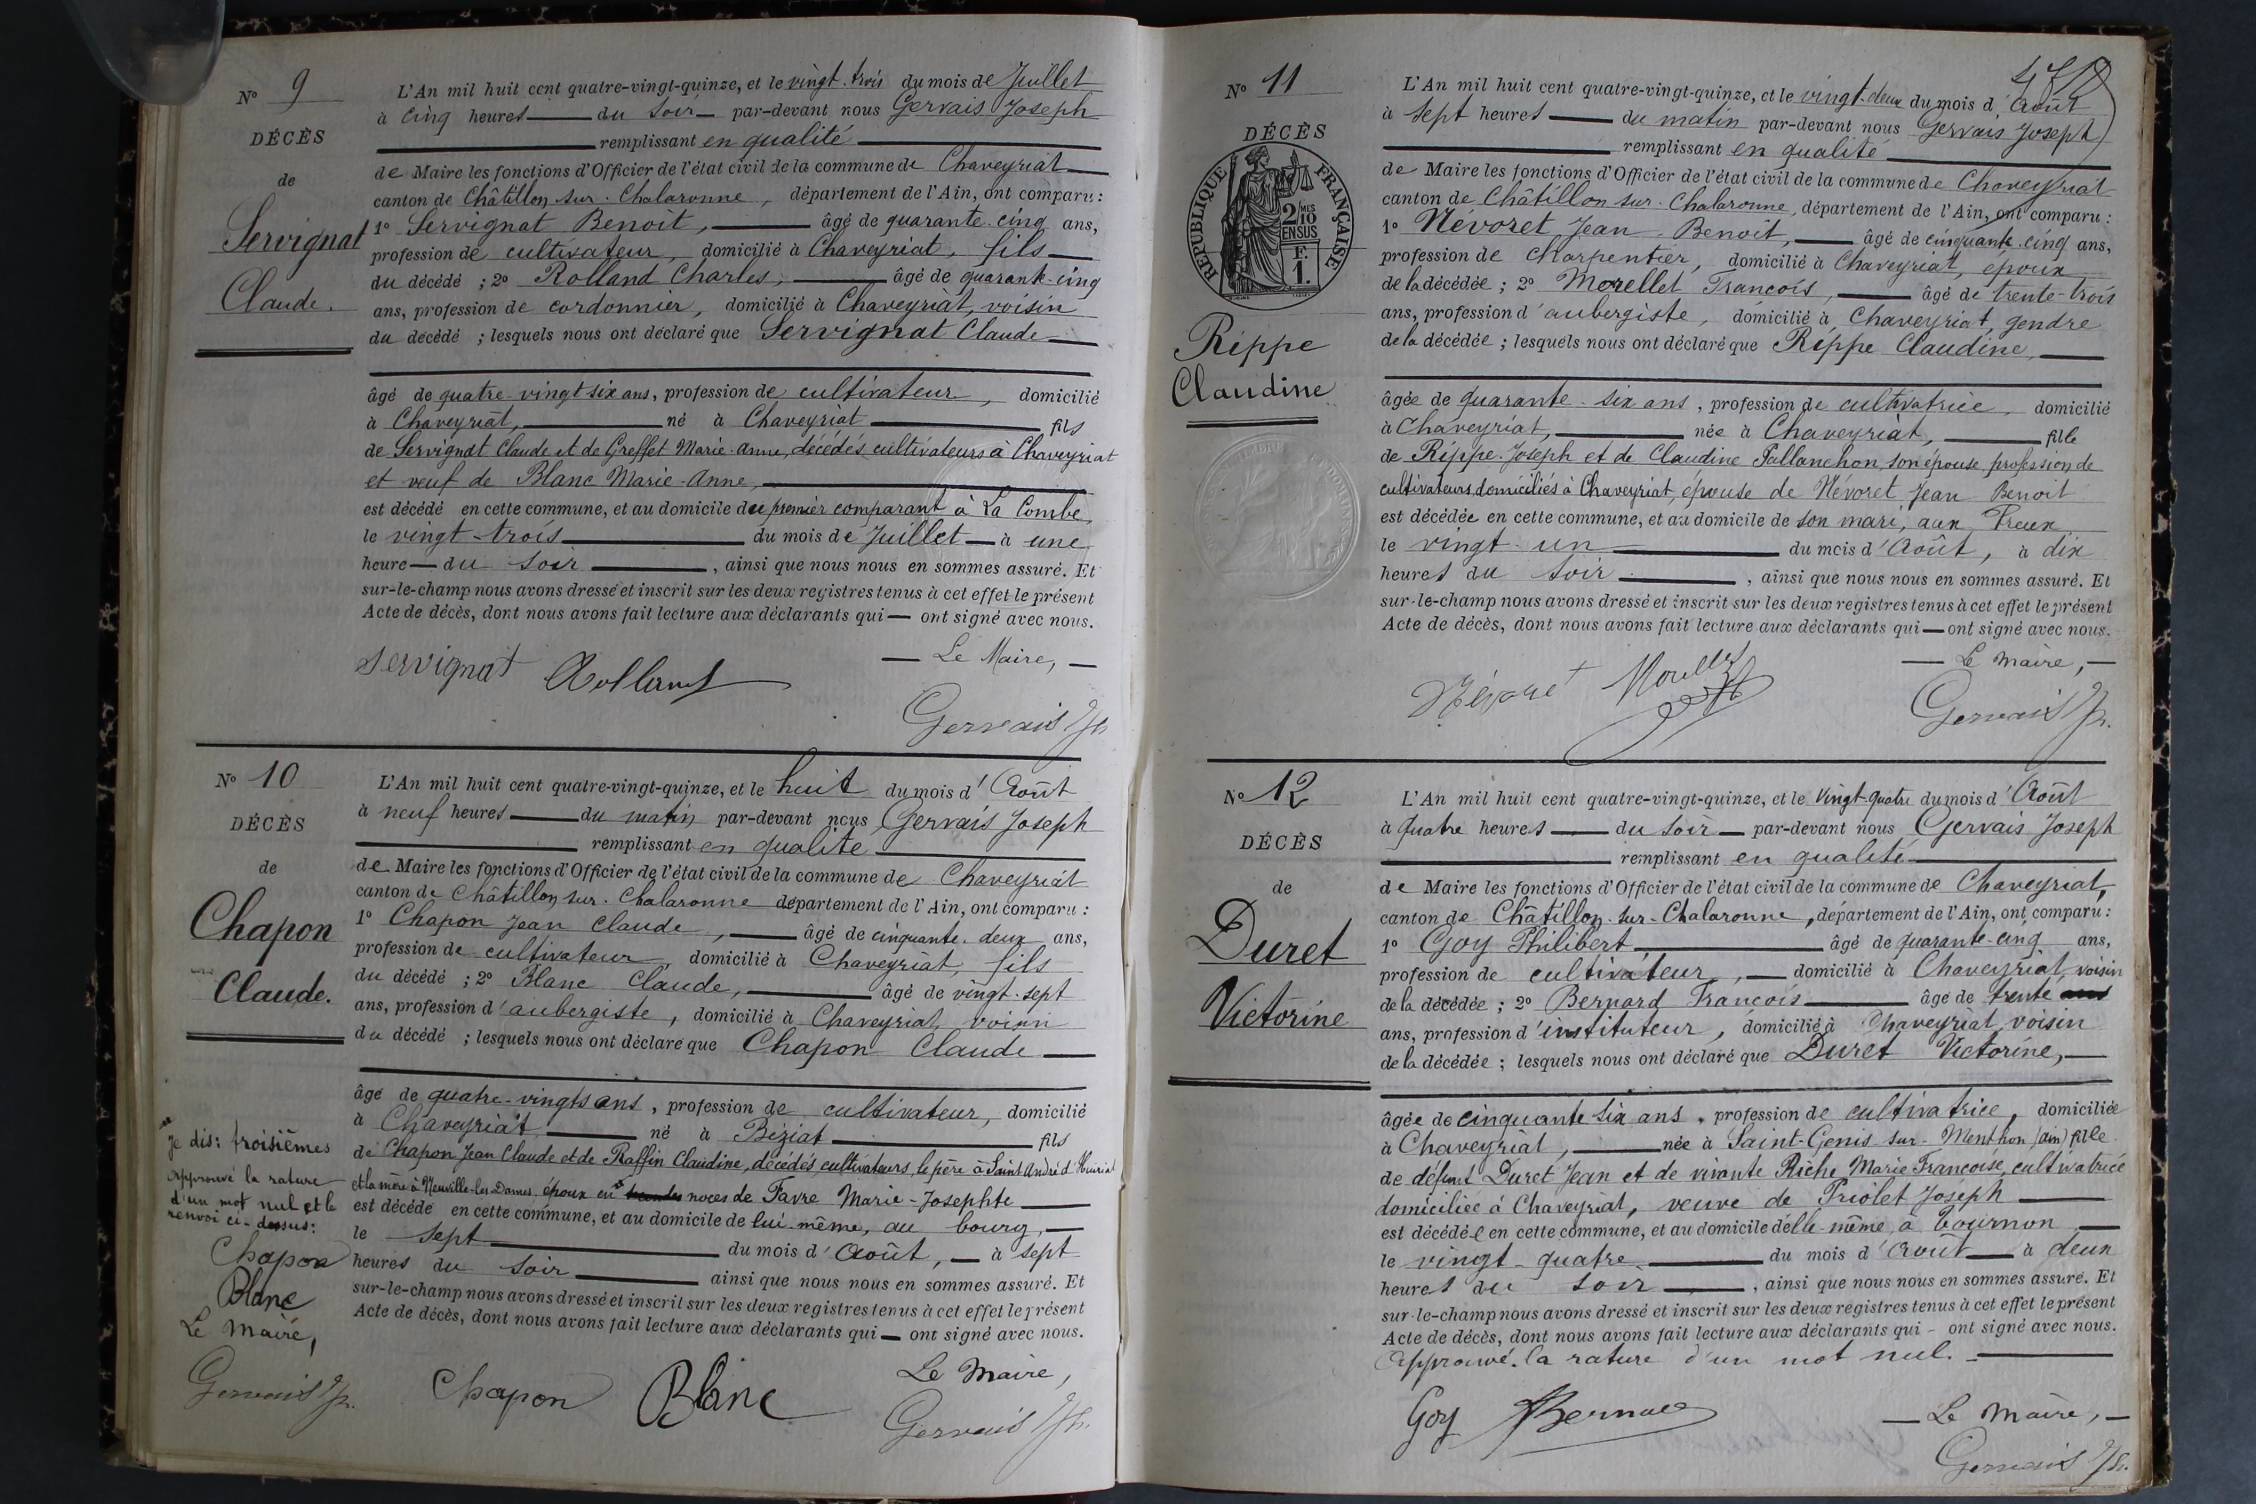 N° 9
DÉCÈS
de
Servignat
Claude.
L'An mil huit cent quatre-vingt-quinze, et le vingt-trois du mois de Juillet
à cinq heures du soir par-devant nous Gervais Joseph
remplissant en qualité
de Maire les fonctions d'Officier de l'état civil de la commune de Chaveyriat
canton de Châtillon sur Chalaronne, département de l'Ain, ont comparu :
1° Servignat Benoit, âgé de quarante-cinq ans,
profession de cultivateur, domicilié à Chaveyriat, fils
du décédé ; 2° Rolland Charles, âgé de quarante-cinq
ans, profession de cordonnier, domicilié à Chaveyriat, voisin
du décédé ; lesquels nous ont déclaré que Servignat Claude
âgé de quatre-vingt six ans, profession de cultivateur, domicilié
à Chaveyriat, né à Chaveyriat fils
de Servignat Claude et de Greffet Marie-Anne, décédés cultivateurs à Chaveyriat
et veuf de Blanc Marie-Anne,
est décédé en cette commune, et au domicile du premier comparant à La Combe,
le vingt-trois du mois de Juillet à une
heure du soir, ainsi que nous nous en sommes assuré. Et
sur-le-champ nous avons dressé et inscrit sur les deux registres tenus à cet effet le présent
Acte de décès, dont nous avons fait lecture aux déclarants qui ont signé avec nous.
Le Maire,
Servignat Rolland
Gervais Jh
N° 10
DÉCÈS
de
Chapon
Claude.
L'An mil huit cent quatre-vingt-quinze, et le huit du mois d'Août
à neuf heures du matin par-devant nous Gervais Joseph
remplissant en qualité
de Maire les fonctions d'Officier de l'état civil de la commune de Chaveyriat
canton de Châtillon sur Chalaronne département de l'Ain, ont comparu :
1° Chapon Jean Claude, âgé de cinquante-deux ans,
profession de cultivateur, domicilié à Chaveyriat, fils
du décédé ; 2° Blanc Claude, âgé de vingt-sept
ans, profession d'aubergiste, domicilié à Chaveyriat, voisin
du décédé ; lesquels nous ont déclaré que Chapon Claude
âgé de quatre-vingts ans, profession de cultivateur, domicilié
à Chaveyriat né à Béziat fils
de Chapon Jean Claude et de Raffin Claudine, décédés cultivateurs, le père à Saint André d'Huiriat
et la mère à Neuville-les-Dames, époux en noces de Favre Marie-Josephte
est décédé en cette commune, et au domicile de lui-même, au bourg,
le sept du mois d'Août, à sept
heures du soir ainsi que nous nous en sommes assuré. Et
sur-le-champ nous avons dressé et inscrit sur les deux registres tenus à cet effet le présent
Acte de décès, dont nous avons fait lecture aux déclarants qui ont signé avec nous.
Je dis: troisièmes
approuvé la rature
d'un mot nul et le
renvoi ci-dessus:
Chapon
Blanc
Le Maire,
Gervais Jh.
Le Maire,
Chapon Blanc
Gervais Jh.
N° 11
DÉCÈS
RÉPUBLIQUE FRANÇAISE
2/MES
10
EN SUS
F.
1.
Rippe
Claudine
L'An mil huit cent quatre-vingt-quinze, et le vingt-deux du mois d'Août
à sept heures du matin par-devant nous Gervais Joseph
remplissant en qualité
de Maire les fonctions d'Officier de l'état civil de la commune de Chaveyriat
canton de Châtillon sur Chalaronne, département de l'Ain, ont comparu :
1° Névoret Jean-Benoit, âgé de cinquante-cinq ans,
profession de charpentier, domicilié à Chaveyriat, époux
de la décédée ; 2° Morellet François, âgé de trente-trois
ans, profession d'aubergiste, domicilié à Chaveyriat, gendre
de la décédée ; lesquels nous ont déclaré que Rippe Claudine,
âgée de quarante-six ans, profession de cultivatrice, domicilié
à Chaveyriat, née à Chaveyriat, fille
de Rippe Joseph et de Claudine Pallanchon, son épouse, profession de
cultivateurs, domiciliés à Chaveyriat, épouse de Névoret Jean Benoit
est décédée en cette commune, et au domicile de son mari, aux Preux
le vingt-un du mois d'Août, à dix
heures du soir, ainsi que nous nous en sommes assuré. Et
sur-le-champ nous avons dressé et inscrit sur les deux registres tenus à cet effet le présent
Acte de décès, dont nous avons fait lecture aux déclarants qui ont signé avec nous.
Le Maire,
Névoret
Gervais Jh.
N° 12
DÉCÈS
de
Duret
Victorine
L'An mil huit cent quatre-vingt-quinze, et le vingt-quatre du mois d'Août
à quatre heures du soir par-devant nous Gervais Joseph
remplissant en qualité
de Maire les fonctions d'Officier de l'état civil de la commune de Chaveyriat,
canton de Châtillon-sur-Chalaronne, département de l'Ain, ont comparu :
1° Goy Philibert, âgé de quarante-cinq ans,
profession de cultivateur, domicilié à Chaveyriat, voisin
de la décédée ; 2° Bernard François âgé de trente ans
ans, profession d'instituteur, domicilié à Chaveyriat, voisin
de la décédée ; lesquels nous ont déclaré que Duret Victorine,
âgée de cinquante six ans, profession de cultivatrice, domiciliée
à Chaveyriat, née à Saint-Genis-sur-Menthon (ain) fille
de défunt Duret Jean et de vivante Riche Marie Françoise, cultivatrice
domiciliée à Chaveyriat, veuve de Priolet Joseph
est décédée en cette commune, et au domicile d'elle-même, à Tournon,
le vingt-quatre du mois d'Août à deux
heures du soir, ainsi que nous nous en sommes assuré. Et
sur-le-champ nous avons dressé et inscrit sur les deux registres tenus à cet effet le présent
Acte de décès, dont nous avons fait lecture aux déclarants qui - ont signé avec nous.
Approuvé la rature d'un mot nul.
Le Maire,
Goy Bernard
Gervais Jh.